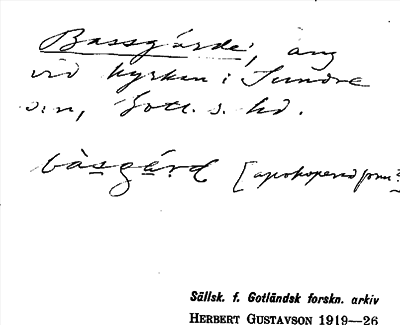 Bassgårde, äng
vid kyrkan i Sundre
s:n, Gotl. s. hd.
bàsgård [apokoperad form?
Sällsk. f. Gotländsk forskn. arkiv
HERBERT GUSTAVSON 1919—26